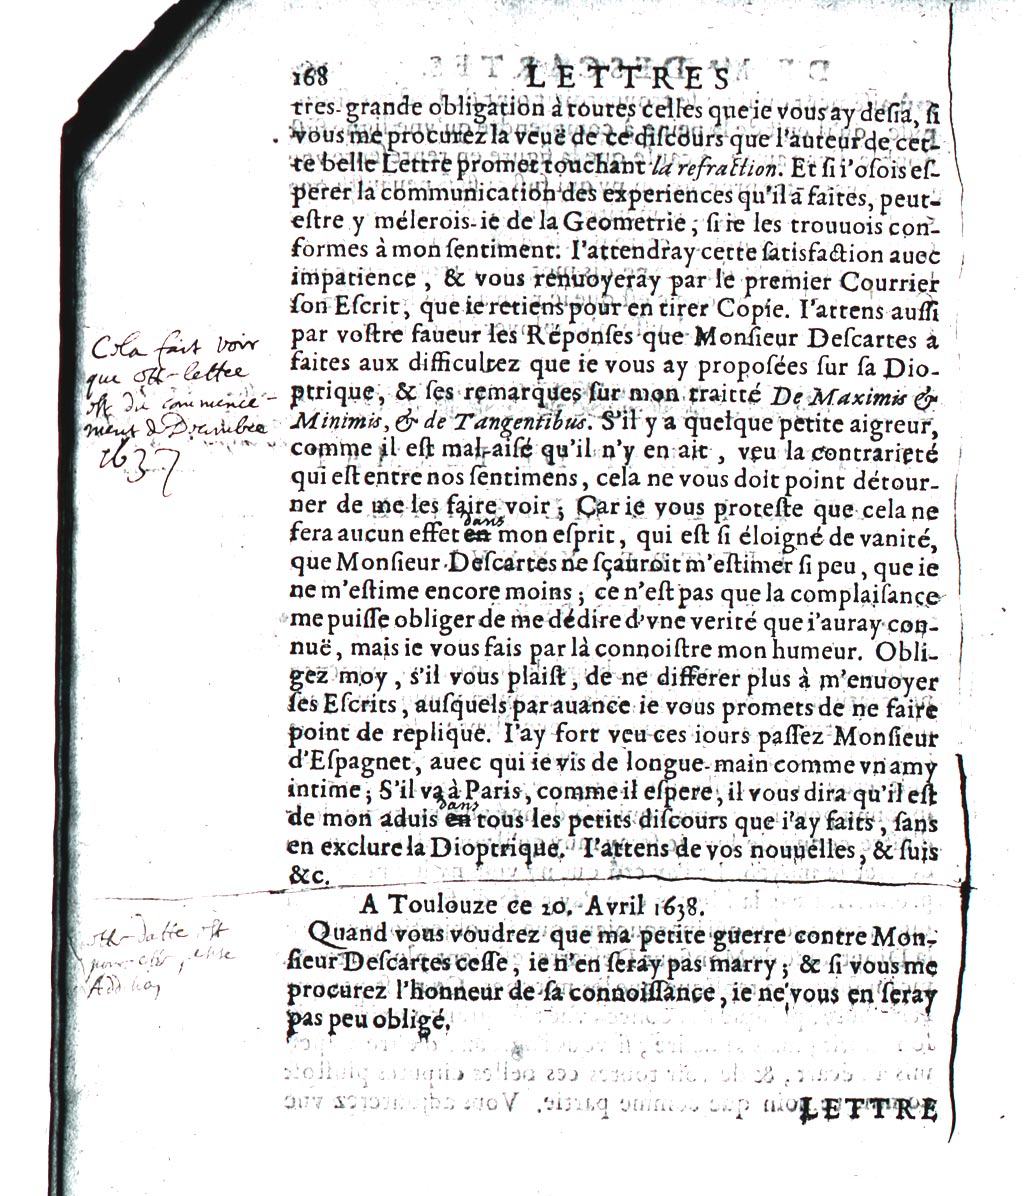 168 LETTRES
tres-grande obligation à toutes celles que ie vous ay desia, si
vous me procurez la veuë de ce discours que l'auteur de cet-
te belle Lettre promet touchant la refraction. Et si i'osois es-
perer la communication des experiences qu'il a faites, peut-
estre y mélerois-ie de la Geometrie, si ie les trouuois con-
formes à mon sentiment. I'attendray cette satisfaction auec
impatience, & vous renuoyeray par le premier Courrier
son Escrit, que ie retiens pour en tirer Copie. I'attens aussi
par vostre faueur les Réponses que Monsieur Descartes a
faites aux difficultez que ie vous ay proposées sur sa Dio-
ptrique, & ses remarques sur mon traitté De Maximis &
Minimis, & de Tangentibus. S'il y a quelque petite aigreur,
comme il est mal-aisé qu'il n'y en ait, veu la contrarieté
qui est entre nos sentimens, cela ne vous doit point détour-
ner de me les faire voir; Car ie vous proteste que cela ne
fera aucun effet en dans mon esprit, qui est si éloigné de vanité,
que Monsieur Descartes ne sçauroit m'estimer si peu, que ie
ne m'estime encore moins; ce n'est pas que la complaisance
me puisse obliger de me dédire d'vne verité que i'auray con-
nuë, mais ie vous fais par là connoistre mon humeur. Obli-
gez moy, s'il vous plaist, de ne différer plus à m'enuoyer
ses Escrits, ausquels par auance ie vous promets de ne faire
point de replique. I'ay fort veu ces iours passez Monsieur
d'Espagnet, auec qui ie vis de longue-main comme vn amy
intime; S'il va à Paris, comme il espere, il vous dira qu'il est
de mon aduis en dans tous les petits discours que i'ay faits, sans
en exclure la Dioptrique. I'attens de vos nouuelles, & suis
&c.
A Toulouze ce 20. Avril 1638.
Quand vous voudrez que ma petite guerre contre Mon-
sieur Descartes cesse, ie n'en seray pas marry; & si vous me
procurez l'honneur de sa connoissance, ie ne vous en seray
pas peu obligé.
LETTRE
Cela fait voir
que cette lettre
est du commence-
ment de Decembre
1637
cette datte est